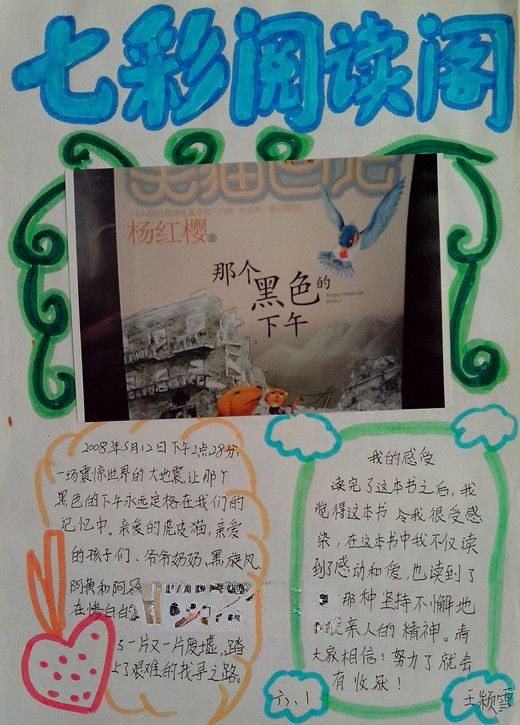 七彩阅读阁
笑猫日记
杨红樱 著
那个黑色的下午
2008年5月12日下午2点28分,
一场震惊世界的大地震让那个
黑色的下午永远定格在我们的
记忆中。亲爱的虎皮猫,亲爱
的孩子们、爷爷奶奶、黑旋风
阿黄和阿
在惨白的
一片又一片废墟,踏
上了艰难的找寻之路。
我的感受
读完了这本书之后,我
觉得这本书令我很受感
染,在这本书中我不仅读
到了感动和爱,也读到了
那种坚持不懈地
亲人的精神。
大家相信:努力了就会
有收获!
六、1
王颖雪